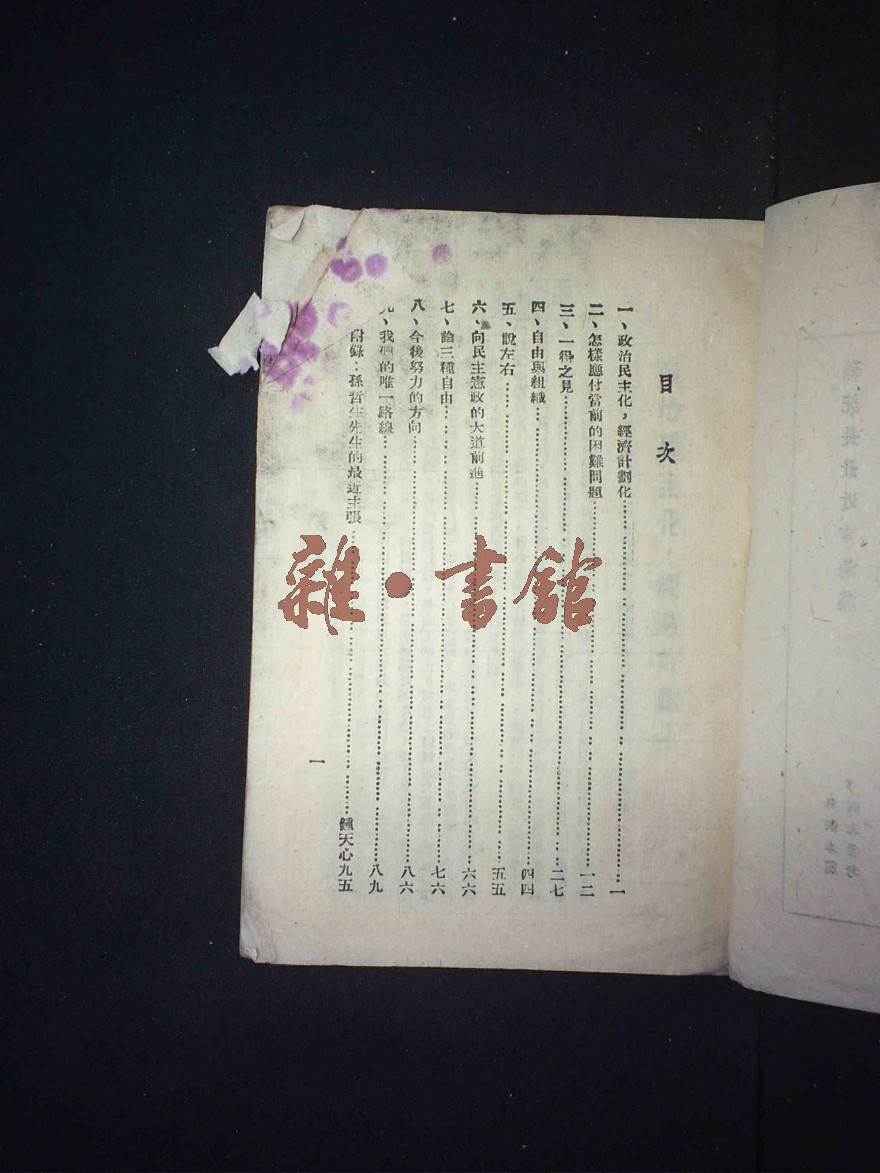 目次
一、政治民主化，經濟計劃化……一
二、怎樣應付當前的困難問題……一二
三、一得之見……二七
四、自由與組織……四四
五、說左右……五五
六、向民主憲政的大道前進……六六
七、論三種自由……七六
八、今後努力的方向……八六
九、我們的唯一路線……八九
附錄：孫哲生先生的最近主張……鍾天心九五
一
雜·書館